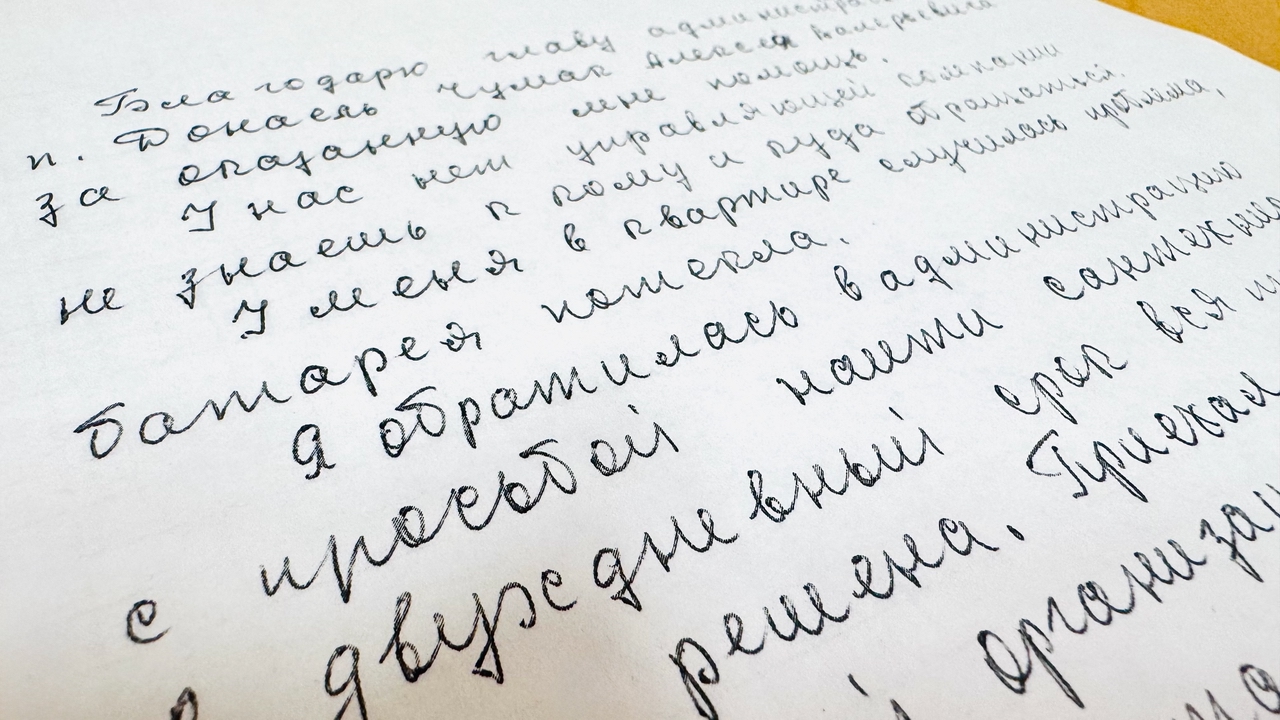 Благодарю главу администрац
п. Донаель Чумак Алексея Валерьевича
за оказанную мне помощь.
У нас нет управляющей компании
не знаешь к кому и куда обращаться.
У меня в квартире случилась проблема,
батарея потекла.
Я обратилась в администрацию
с просьбой найти сантехник
в двухдневный срок вся п
решена. Приехал
й организац